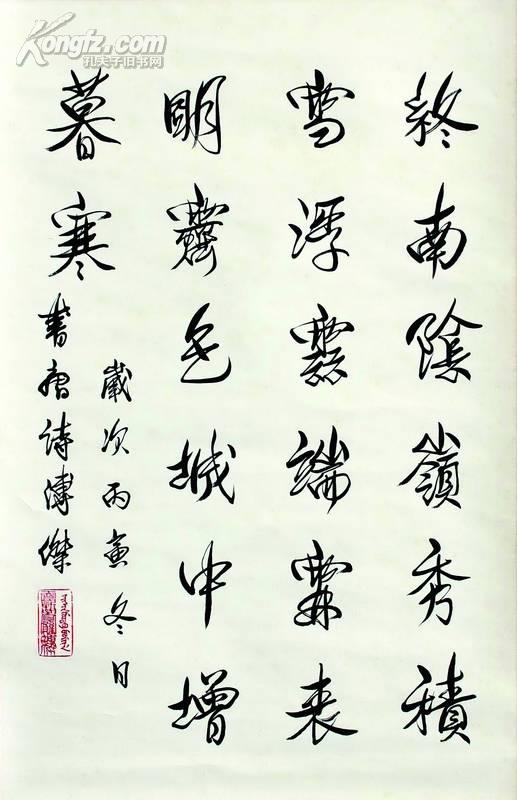 Kongfz.com
孔夫子旧书网
終南陰嶺秀積
雪浮雲端霖表
明霽色城中增
暮寒
歲次丙寅冬日
書唐詩溥傑